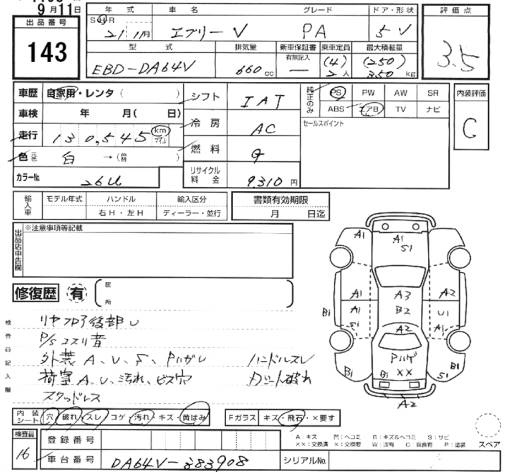 9月11日
出品番号 143
年式 車名 グレード ドア・形状 評価点
S H R
21 1月 エブリーV PA 5V 3.5
型式 排気量 新車保証書 乗車定員 最大積載量
有無記入
EBD-DA64V 660cc — (4) 2人 (250) 350kg
車歴 自家用・レンタ( )
シフト IAT
純正のみ PS PW AW SR
ABS エアB TV ナビ
内装評価 C
車検 年 月( 日)
冷房 AC
セールスポイント
走行 130,545 km マイル
燃料 G
色 白 →( )
カラーNo. 26U
リサイクル料金 9,310円
輸入車 モデル年式 ハンドル 輸入区分
右H・左H ディーラー・並行
書類有効期限
月 日迄
出品店申告欄
※注意事項等記載
修復歴 有 箇所
検査員記入欄
リヤフロア後部U
P/Sコスリ有
外装A、U、S、Pハガレ ハンドルスレ
荷室A、U、汚れ、ビス穴 Dシート破れ
スタッドレス
A1 A1 S1
A1 A1 A3 A1
B1 A1 S1 B2 U1 B1
A2
B1 Pハゲ ×× B1
S1
A2
内装シート 穴 破れ スレ コゲ 汚れ キズ・黄ばみ
Fガラス キズ・飛石・×要す
スペア
検査員 16
登録番号
車台番号 DA64V-383908
シリアルNo.